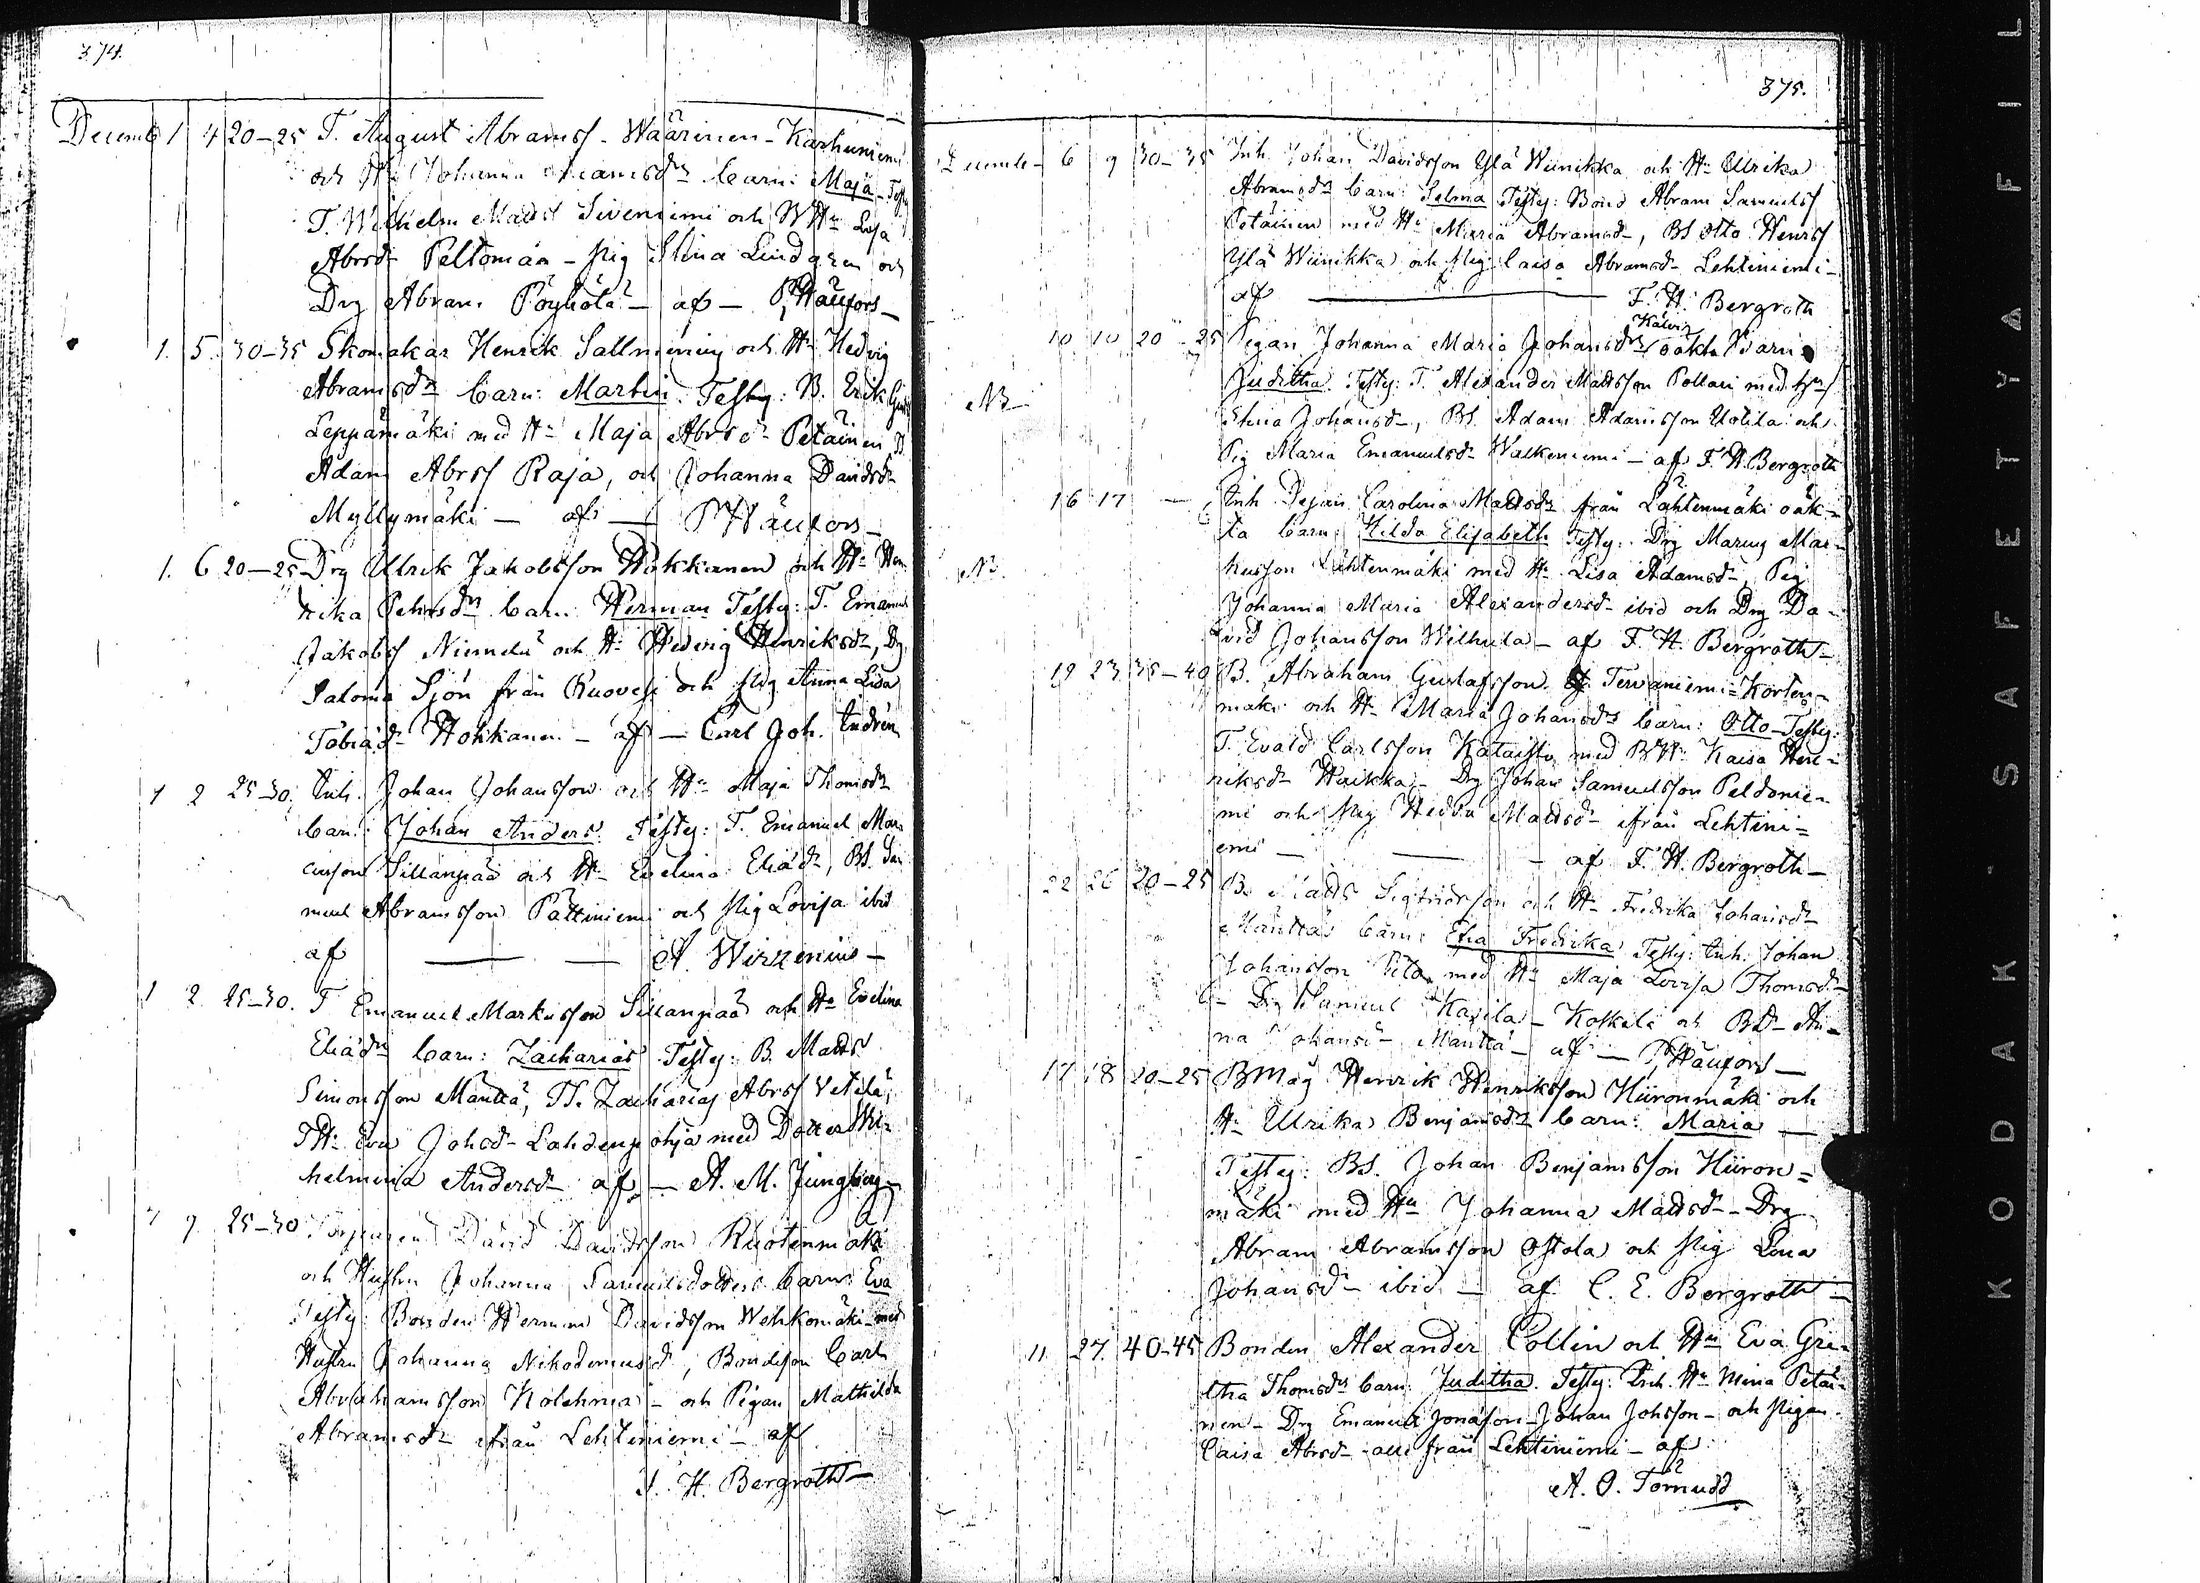 374.
Decemb 1 4 20–25 T. August Abramsf - Wäärinen - Karhuniemi
och Hu Johanna Adamsdr barn: Maja - Testg
T. Wilhelm Mattsf Siveniemi och WHu Lisa
Abrsdr Peltomaa – Pig Stina Lindgren och
Drg Abram Pöyhölä – af – P. Häufors –
1. 5. 30–35 Skomakar Henrik Sallmening och Hu Hedvig
Abramsdr barn: Martin. Testg: B. Erik
Leppämäki med Hu Maja Abrsdr Petäinen
Adam Abrsf Raja, och Johanna Davidsdr
Myllymäki – af – P Häufors –
1. 6 20–25 Drg Ulrik Jakobsson Hokkanen och Hu Hen
rika Pehrsdr barn: Herman Testg: T. Emanuel
Jakobsf Niemelä och Hu Hedvig Henriksdr, Drg
Salomo Sjön från Ruovesi och Pig Anna Lisa
Tobiasdr Hokkanen – af – Carl Joh. Indrén
1 2 25–30. Inh. Johan Johansson och Hu Maja Thomsdr
barn: Johan Anders. Testg: T. Emanuel Mar
cusson Sillanpää och Hu Evelina Eliädr, BS. Sa
muel Abramsson Pättiniemi och Pig Lovisa ibid
af — — A. Wirzenius –
1 2 25–30. T Emanuel Markusson Sillanpää och Hu Evelina
Eliädr barn: Zacharias Testg: B. Matts
Simonsson Mänttä, TS. Zacharias Abrsf Vetelä,
THu Eva Johsdr Lahdenpohja med Dotter Wil
helmina Andersdr af – A. M. Jungberg
7 9 25–30 Torparen David Davidsson Ruotenmäki
och Hustru Johanna Samuelsdotters barn: Eva
Testg: Bonden Herman Davidsson Wehkomäki med
Hustru Johanna Nikodemusdr, Bondeson Carl
Abrahamsson Kolehma – och Pigan Mathilda
Abramsdr från Lehtiniemi – af
F. H. Bergroth –
375.
Decemb – 6 9 30–35 Inh. Johan Davidsson Ylä Wiinikka och Hu Ulrika
Abramsdr barn: Selma Testg: Bond Abram Samuelsf
Petäinen med Hu Maria Abramsdr, BS Otto Henrsf
Ylä Wiinikka och Pig Caisa Abramsdr Lehtiniemi –
af — F. H. Bergroth
Kälviä
10 10 20–25 Pigan Johanna Maria Johansdrs oäkta Barn
Juditha. Testg: T. Alexander Mattsson Pollari med
NB Stina Johansdr, BS. Adam Adamsson Uotila och
Pig Maria Emanuelsdr Walkeniemi – af F. H. Bergroth
16 17 — Inh. Pigan Carolina Mattsdr från Lähtenmäki oäk–
ta barn: Hilda Elisabeth Testg: Drg Marcus Mar–
NB. kusson Lähtenmäki med Hu Lisa Adamsdr, Pig
Johanna Maria Alexandersdr ibid och Drg Da–
vid Johansson Wilhula – af F. H. Bergroth –
19 23 35–40 B. Abraham Gustafsson Tervaniemi - Korten–
mäki och Hu Maria Johansdrs barn: Otto – Testg:
T. Evald Carlsson Kataisto med BHu Kaisa Hen–
riksdr Huikka – Drg Johan Samuelsson Peldonie–
mi och Pig Hedda Mattsdr från Lehtini=
emi — — – af F. H. Bergroth –
22 26 20–25 B. Matts Sigfridsson och Hu Fredrika Johansdr
Mänttäs barn: Eva Fredrika Testg: Inh. Johan
Johansson med Hu Maja Lovisa Thomsdr –
Drg Samuel Kaxila – Koskela och BD – An–
na Johansdr Mänttä – af – P. Häufors –
17 18 20–25 BMåg Henrik Henriksson Hiironmäki och
Hu Ulrika Benjamsdrs barn: Maria –
Testg: BS. Johan Benjamsson Hiiron=
mäki med Hu Johanna Mattsdr – Drg
Abram Abramsson Ostola och Pig Lona
Johansdr ibid – af C. E. Bergroth –
11 27. 40–45 Bonden Alexander Collin och Hu Eva Gre–
tha Thomsdrs barn: Juditha. Testg: Inh. Hu Mina Petäi–
nen – Drg Emanuel Jonasson – Johan Johsson – och Pigan
Caisa Abrsdr – alla från Lehtiniemi – af
A. O. Törnudd
KODAK · SAFETY A FIL